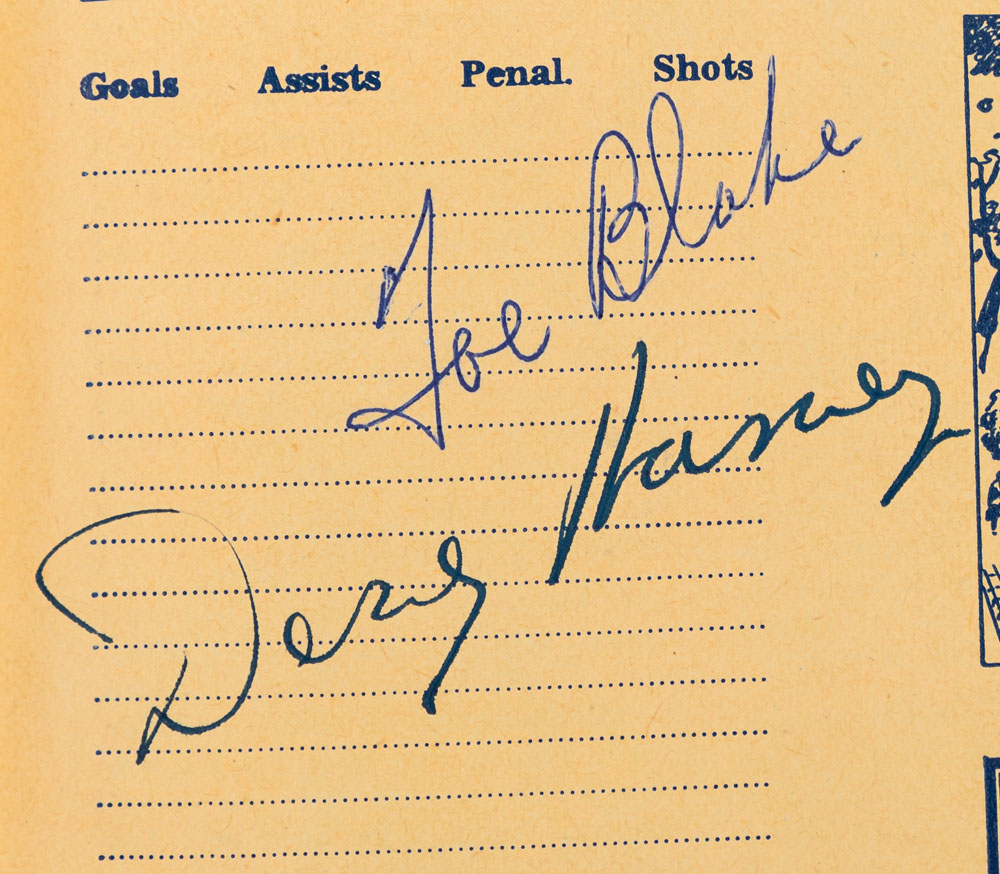 Goals Assists Penal. Shots
Toe Blake
Doug Harvey